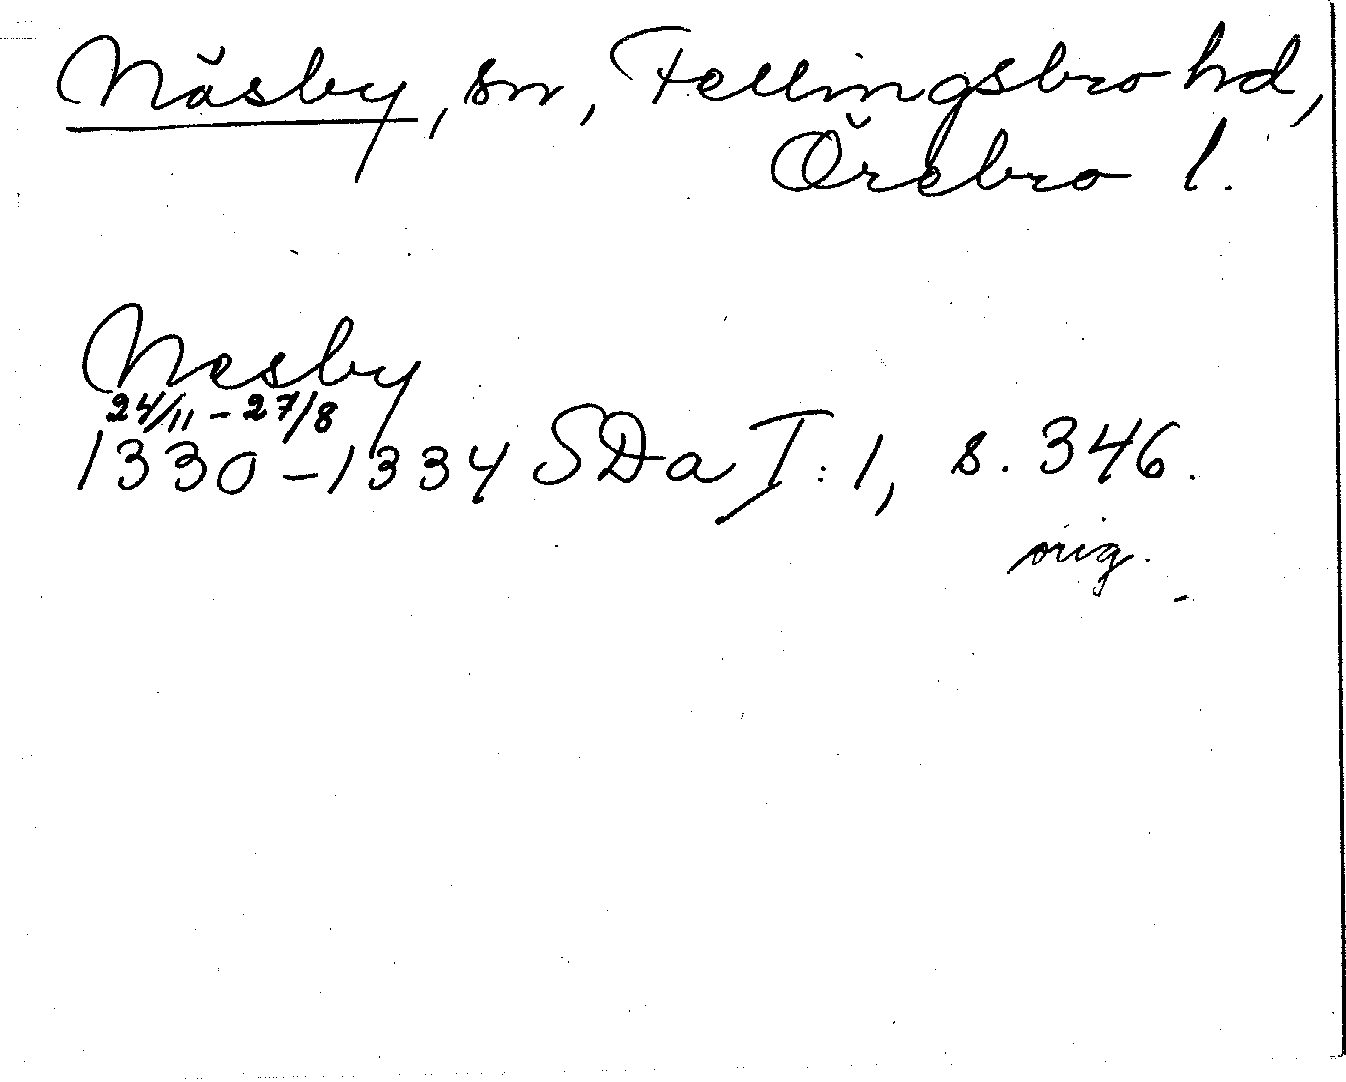 Näsby, sn, Fellingsbro hd,
Örebro l.
Nesby
24/11 - 27/8
1330-1334 SDa I:1, s. 346.
orig.